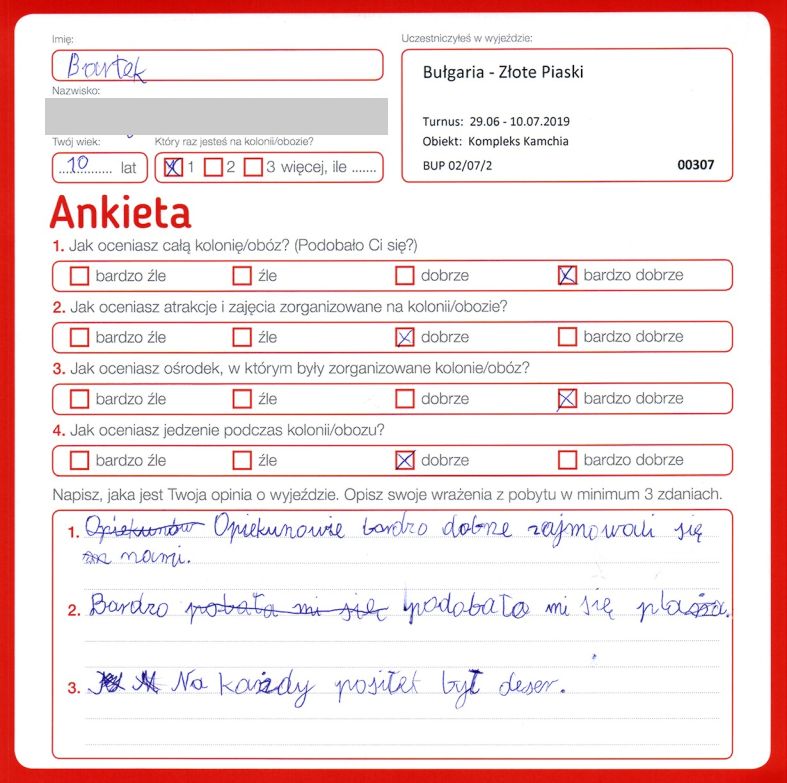 Imię:
Bartek
Nazwisko:
Twój wiek:
10 lat
Który raz jesteś na kolonii/obozie?
1 2 3 więcej, ile .......
Uczestniczyłeś w wyjeździe:
Bułgaria - Złote Piaski
Turnus: 29.06 - 10.07.2019
Obiekt: Kompleks Kamchia
BUP 02/07/2 00307
Ankieta
1. Jak oceniasz całą kolonię/obóz? (Podobało Ci się?)
bardzo źle źle dobrze bardzo dobrze
2. Jak oceniasz atrakcje i zajęcia zorganizowane na kolonii/obozie?
bardzo źle źle dobrze bardzo dobrze
3. Jak oceniasz ośrodek, w którym były zorganizowane kolonie/obóz?
bardzo źle źle dobrze bardzo dobrze
4. Jak oceniasz jedzenie podczas kolonii/obozu?
bardzo źle źle dobrze bardzo dobrze
Napisz, jaka jest Twoja opinia o wyjeździe. Opisz swoje wrażenia z pobytu w minimum 3 zdaniach.
1. Opiekunów Opiekunowie bardzo dobrze zajmowali się
nami.
2. Bardzo pobała mi się podobała mi się plaża.
3. Na każdy positek był deser.